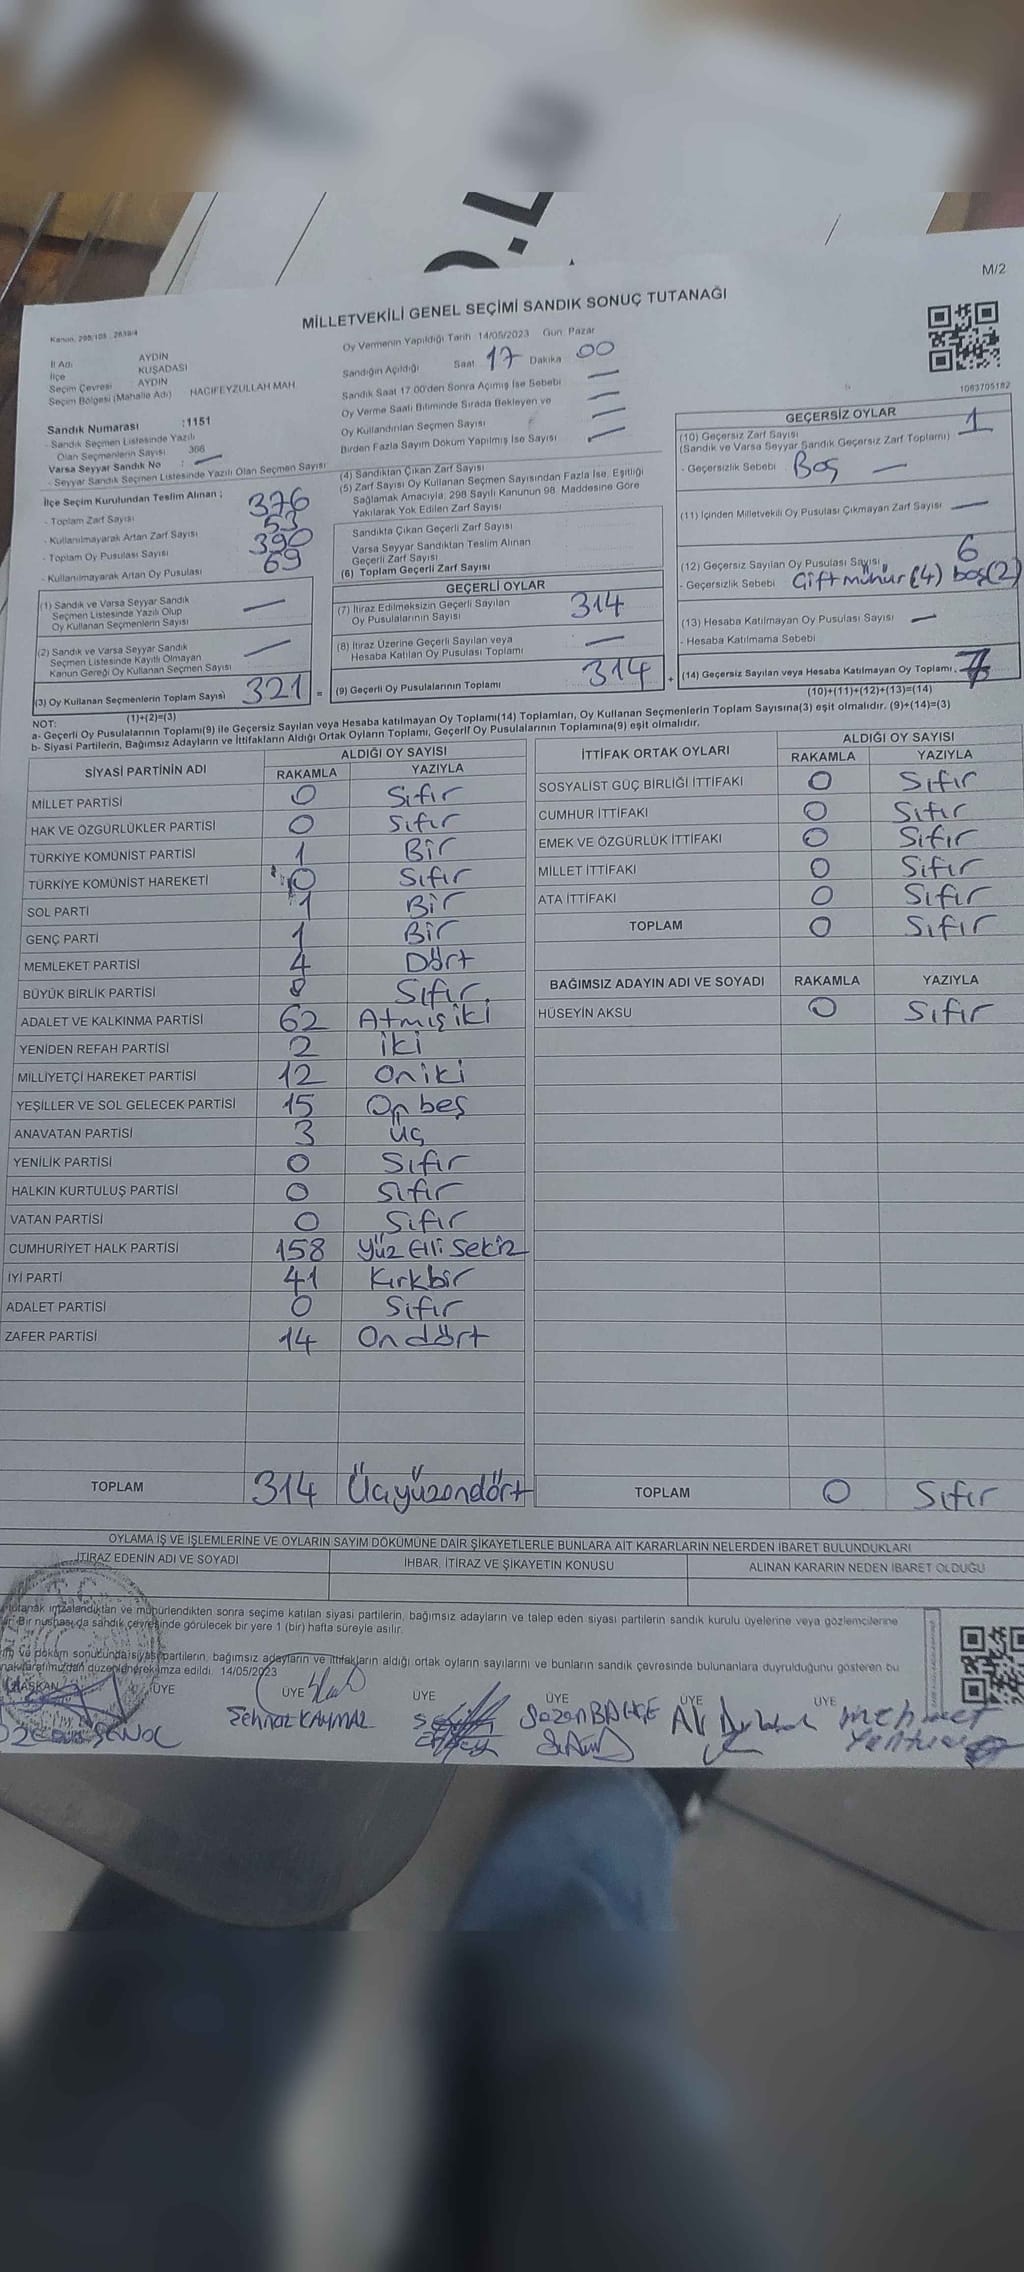 M/2
MİLLETVEKİLİ GENEL SEÇİMİ SANDIK SONUÇ TUTANAĞI
İl Adı AYDIN
İlçe KUŞADASI
Seçim Çevresi AYDIN
Seçim Bölgesi (Mahalle Adı) HACIFEYZULLAH MAH.
Sandık Numarası :1151
- Sandık Seçmen Listesinde Yazılı
Olan Seçmenlerin Sayısı 366
Varsa Seyyar Sandık No : —
- Seyyar Sandık Seçmen Listesinde Yazılı Olan Seçmen Sayısı
Oy Vermenin Yapıldığı Tarih 14/05/2023 Gün Pazar
Sandığın Açıldığı Saat 17 Dakika 00
Sandık Saat 17.00'den Sonra Açılmış İse Sebebi —
Oy Verme Saati Bitiminde Sırada Bekleyen ve —
Oy Kullandırılan Seçmen Sayısı —
Birden Fazla Sayım Döküm Yapılmış İse Sayısı —
1063705182
İlçe Seçim Kurulundan Teslim Alınan ;
- Toplam Zarf Sayısı 376
- Kullanılmayarak Artan Zarf Sayısı 53
- Toplam Oy Pusulası Sayısı 390
- Kullanılmayarak Artan Oy Pusulası 69
(1) Sandık ve Varsa Seyyar Sandık
Seçmen Listesinde Yazılı Olup
Oy Kullanan Seçmenlerin Sayısı —
(2) Sandık ve Varsa Seyyar Sandık
Seçmen Listesinde Kayıtlı Olmayan
Kanun Gereği Oy Kullanan Seçmen Sayısı —
(3) Oy Kullanan Seçmenlerin Toplam Sayısı 321 =
(1)+(2)=(3)
(4) Sandıktan Çıkan Zarf Sayısı
(5) Zarf Sayısı Oy Kullanan Seçmen Sayısından Fazla İse, Eşitliği
Sağlamak Amacıyla, 298 Sayılı Kanunun 98. Maddesine Göre
Yakılarak Yok Edilen Zarf Sayısı
Sandıkta Çıkan Geçerli Zarf Sayısı
Varsa Seyyar Sandıktan Teslim Alınan
Geçerli Zarf Sayısı
(6) Toplam Geçerli Zarf Sayısı
GEÇERLİ OYLAR
(7) İtiraz Edilmeksizin Geçerli Sayılan
Oy Pusulalarının Sayısı 314
(8) İtiraz Üzerine Geçerli Sayılan veya
Hesaba Katılan Oy Pusulası Toplamı —
(9) Geçerli Oy Pusulalarının Toplamı 314 +
GEÇERSİZ OYLAR
(10) Geçersiz Zarf Sayısı 1
(Sandık ve Varsa Seyyar Sandık Geçersiz Zarf Toplamı)
- Geçersizlik Sebebi Boş —
(11) İçinden Milletvekili Oy Pusulası Çıkmayan Zarf Sayısı —
(12) Geçersiz Sayılan Oy Pusulası Sayısı 6
- Geçersizlik Sebebi Çift mühür (4) boş (2)
(13) Hesaba Katılmayan Oy Pusulası Sayısı —
- Hesaba Katılmama Sebebi
(14) Geçersiz Sayılan veya Hesaba Katılmayan Oy Toplamı 7
(10)+(11)+(12)+(13)=(14)
NOT:
a- Geçerli Oy Pusulalarının Toplamı(9) ile Geçersiz Sayılan veya Hesaba katılmayan Oy Toplamı(14) Toplamları, Oy Kullanan Seçmenlerin Toplam Sayısına(3) eşit olmalıdır. (9)+(14)=(3)
b- Siyasi Partilerin, Bağımsız Adayların ve İttifakların Aldığı Ortak Oyların Toplamı, Geçerli Oy Pusulalarının Toplamına(9) eşit olmalıdır.
SİYASİ PARTİNİN ADI ALDIĞI OY SAYISI
RAKAMLA YAZIYLA
MİLLET PARTİSİ 0 Sıfır
HAK VE ÖZGÜRLÜKLER PARTİSİ 0 Sıfır
TÜRKİYE KOMÜNİST PARTİSİ 1 Bir
TÜRKİYE KOMÜNİST HAREKETİ 0 Sıfır
SOL PARTİ 1 Bir
GENÇ PARTİ 1 Bir
MEMLEKET PARTİSİ 4 Dört
BÜYÜK BİRLİK PARTİSİ 0 Sıfır
ADALET VE KALKINMA PARTİSİ 62 Atmış iki
YENİDEN REFAH PARTİSİ 2 iki
MİLLİYETÇİ HAREKET PARTİSİ 12 Oniki
YEŞİLLER VE SOL GELECEK PARTİSİ 15 On beş
ANAVATAN PARTİSİ 3 Üç
YENİLİK PARTİSİ 0 Sıfır
HALKIN KURTULUŞ PARTİSİ 0 Sıfır
VATAN PARTİSİ 0 Sıfır
CUMHURİYET HALK PARTİSİ 158 Yüz Elli Sekiz
İYİ PARTİ 41 Kırkbir
ADALET PARTİSİ 0 Sıfır
ZAFER PARTİSİ 14 On dört
TOPLAM 314 Üçyüzondört
İTTİFAK ORTAK OYLARI ALDIĞI OY SAYISI
RAKAMLA YAZIYLA
SOSYALİST GÜÇ BİRLİĞİ İTTİFAKI 0 Sıfır
CUMHUR İTTİFAKI 0 Sıfır
EMEK VE ÖZGÜRLÜK İTTİFAKI 0 Sıfır
MİLLET İTTİFAKI 0 Sıfır
ATA İTTİFAKI 0 Sıfır
TOPLAM 0 Sıfır
BAĞIMSIZ ADAYIN ADI VE SOYADI RAKAMLA YAZIYLA
HÜSEYİN AKSU 0 Sıfır
TOPLAM 0 Sıfır
OYLAMA İŞ VE İŞLEMLERİNE VE OYLARIN SAYIM DÖKÜMÜNE DAİR ŞİKAYETLERLE BUNLARA AİT KARARLARIN NELERDEN İBARET BULUNDUKLARI
İTİRAZ EDENİN ADI VE SOYADI İHBAR, İTİRAZ VE ŞİKAYETİN KONUSU ALINAN KARARIN NEDEN İBARET OLDUĞU
tutanak imzalandıktan ve mühürlendikten sonra seçime katılan siyasi partilerin, bağımsız adayların ve talep eden siyasi partilerin sandık kurulu üyelerine veya gözlemcilerine
Bir nüshası da sandık çevresinde görülecek bir yere 1 (bir) hafta süreyle asılır.
ve döküm sonucunda siyasi partilerin, bağımsız adayların ve ittifakların aldığı ortak oyların sayılarını ve bunların sandık çevresinde bulunanlara duyrulduğunu gösteren bu
tarafımızdan düzenlenerek imza edildi. 14/05/2023
BAŞKAN ÜYE ÜYE ÜYE ÜYE ÜYE ÜYE
ŞENOL Şehnaz KAYMAZ Sezen Mehmet